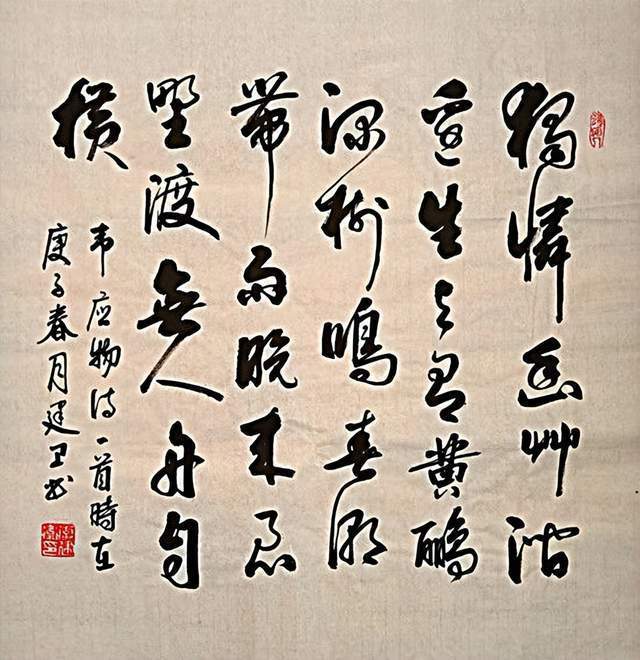 獨憐幽艸澗
邊生上有黄鸝
深樹鳴春潮
帶雨晚来急
野渡無人舟自
横
韦应物诗一首時在
庚子春月建卫书